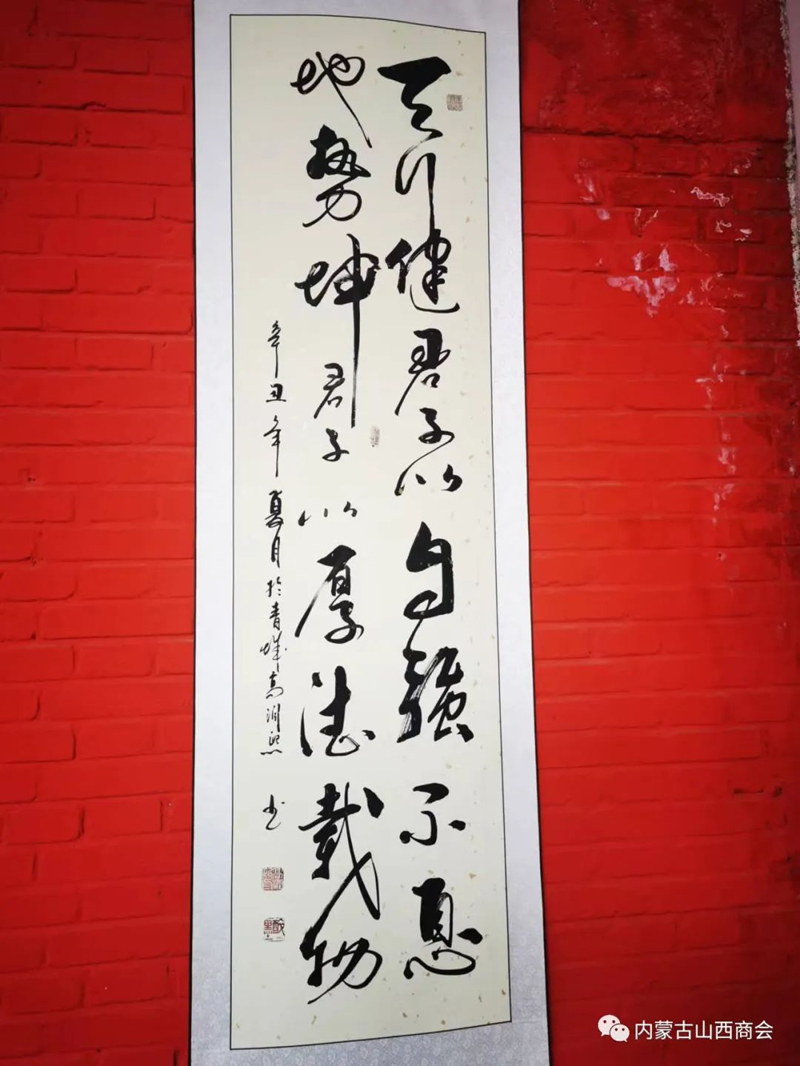 天行健君子以自强不息
地势坤君子以厚德载物
辛丑年夏月於青城高润照书
内蒙古山西商会